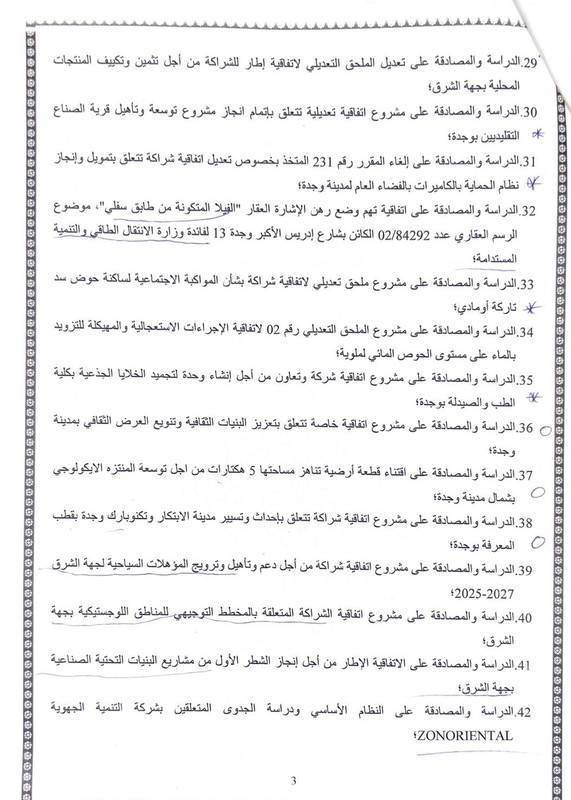 29.الدراسة والمصادقة على تعديل الملحق التعديلي لاتفاقية إطار للشراكة من أجل تثمين وتكييف المنتجات
المحلية بجهة الشرق؛
30.الدراسة والمصادقة على مشروع اتفاقية تعديلية تتعلق بإتمام انجاز مشروع توسعة وتأهيل قرية الصناع
التقليديين بوجدة؛
31.الدراسة والمصادقة على إلغاء المقرر رقم 231 المتخذ بخصوص تعديل اتفاقية شراكة تتعلق بتمويل وإنجاز
نظام الحماية بالكاميرات بالفضاء العام لمدينة وجدة؛
32.الدراسة والمصادقة على اتفاقية تهم وضع رهن الإشارة العقار "الفيلا المتكونة من طابق سفلي"، موضوع
الرسم العقاري عدد 02/84292 الكائن بشارع إدريس الأكبر وجدة 13 لفائدة وزارة الانتقال الطاقي والتنمية
المستدامة؛
33.الدراسة والمصادقة على مشروع ملحق تعديلي لاتفاقية شراكة بشأن المواكبة الاجتماعية لساكنة حوض سد
تاركة أومادي؛
34.الدراسة والمصادقة على مشروع الملحق التعديلي رقم 02 لاتفاقية الإجراءات الاستعجالية والمهيكلة للتزويد
بالماء على مستوى الحوض المائي لملوية؛
35.الدراسة والمصادقة على مشروع اتفاقية شركة وتعاون من أجل إنشاء وحدة لتجميد الخلايا الجذعية بكلية
الطب والصيدلة بوجدة؛
36.الدراسة والمصادقة على مشروع اتفاقية خاصة تتعلق بتعزيز البنيات الثقافية وتنويع العرض الثقافي بمدينة
وجدة؛
37.الدراسة والمصادقة على اقتناء قطعة أرضية تناهز مساحتها 5 هكتارات من اجل توسعة المنتزه الايكولوجي
بشمال مدينة وجدة؛
38.الدراسة والمصادقة على مشروع اتفاقية شراكة تتعلق بإحداث وتسيير مدينة الابتكار وتكنوبارك وجدة بقطب
المعرفة بوجدة؛
39.الدراسة والمصادقة على مشروع اتفاقية شراكة من أجل دعم وتأهيل وترويج المؤهلات السياحية لجهة الشرق
2025-2027؛
40.الدراسة والمصادقة على مشروع اتفاقية الشراكة المتعلقة بالمخطط التوجيهي للمناطق اللوجستيكية بجهة
الشرق؛
41.الدراسة والمصادقة على الاتفاقية الإطار من أجل إنجاز الشطر الأول من مشاريع البنيات التحتية الصناعية
بجهة الشرق؛
42.الدراسة والمصادقة على النظام الأساسي ودراسة الجدوى المتعلقين بشركة التنمية الجهوية
ZONORIENTAL؛
3